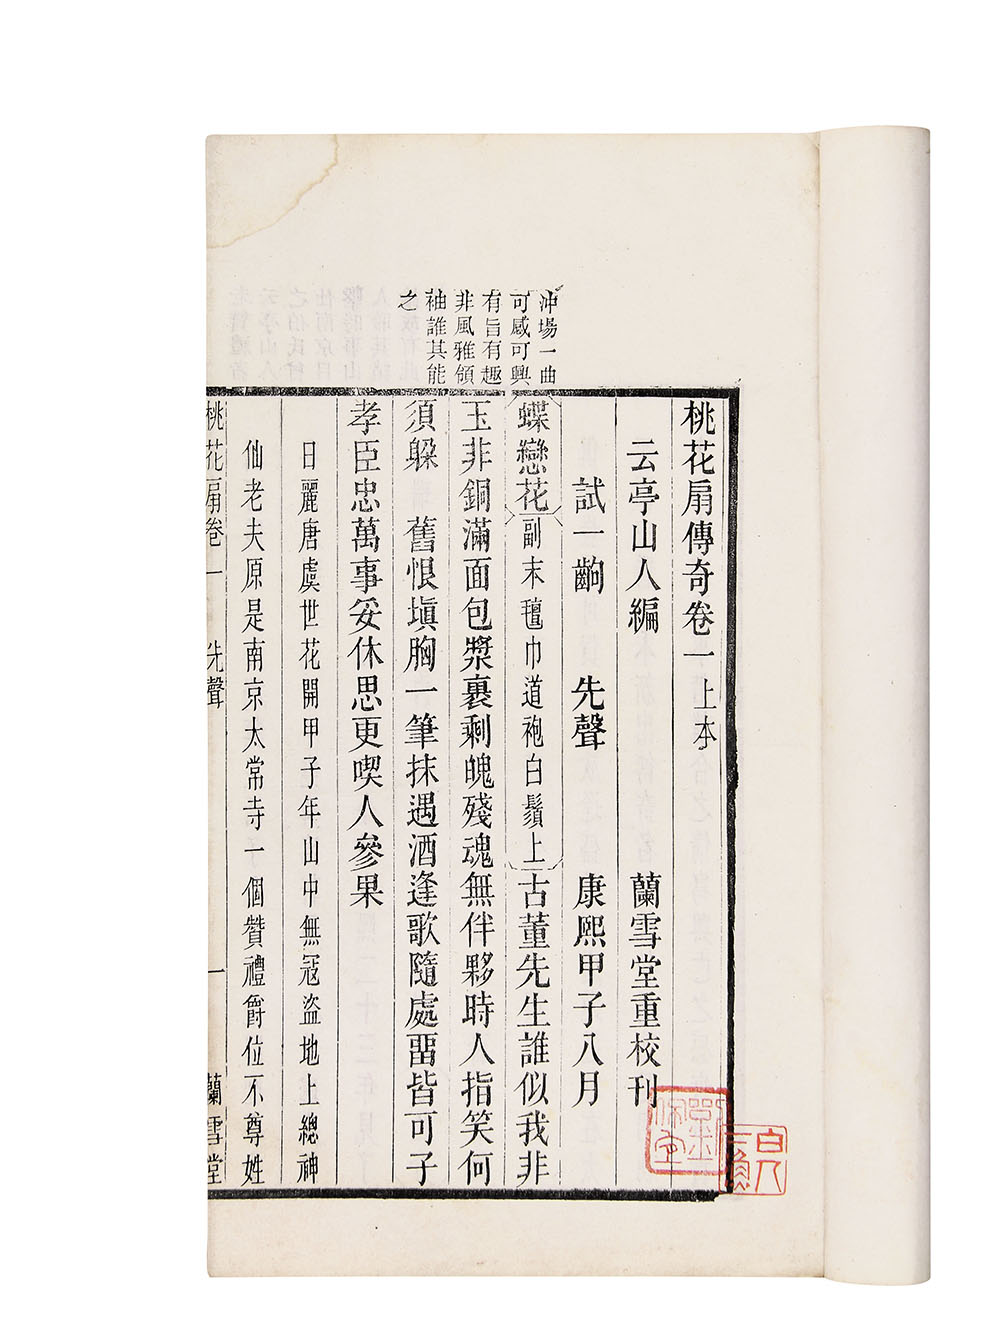 沖場一曲
可感可興
有旨有趣
非風雅領
袖誰其能
之
桃花扇傳奇卷一上本
云亭山人編 蘭雪堂重校刊
試一齣 先聲 康熙甲子八月
蝶戀花副末氊巾道袍白鬚上古董先生誰似我非
玉非銅滿面包漿裹剩魄殘魂無伴夥時人指笑何
須躲 舊恨塡胸一筆抹遇酒逢歌隨處畱皆可子
孝臣忠萬事妥休思更喫人參果
日麗唐虞世花開甲子年山中無冦盜地上總神
仙老夫原是南京太常寺一個贊禮爵位不尊姓
桃花扇卷一 先聲 一 蘭雪堂